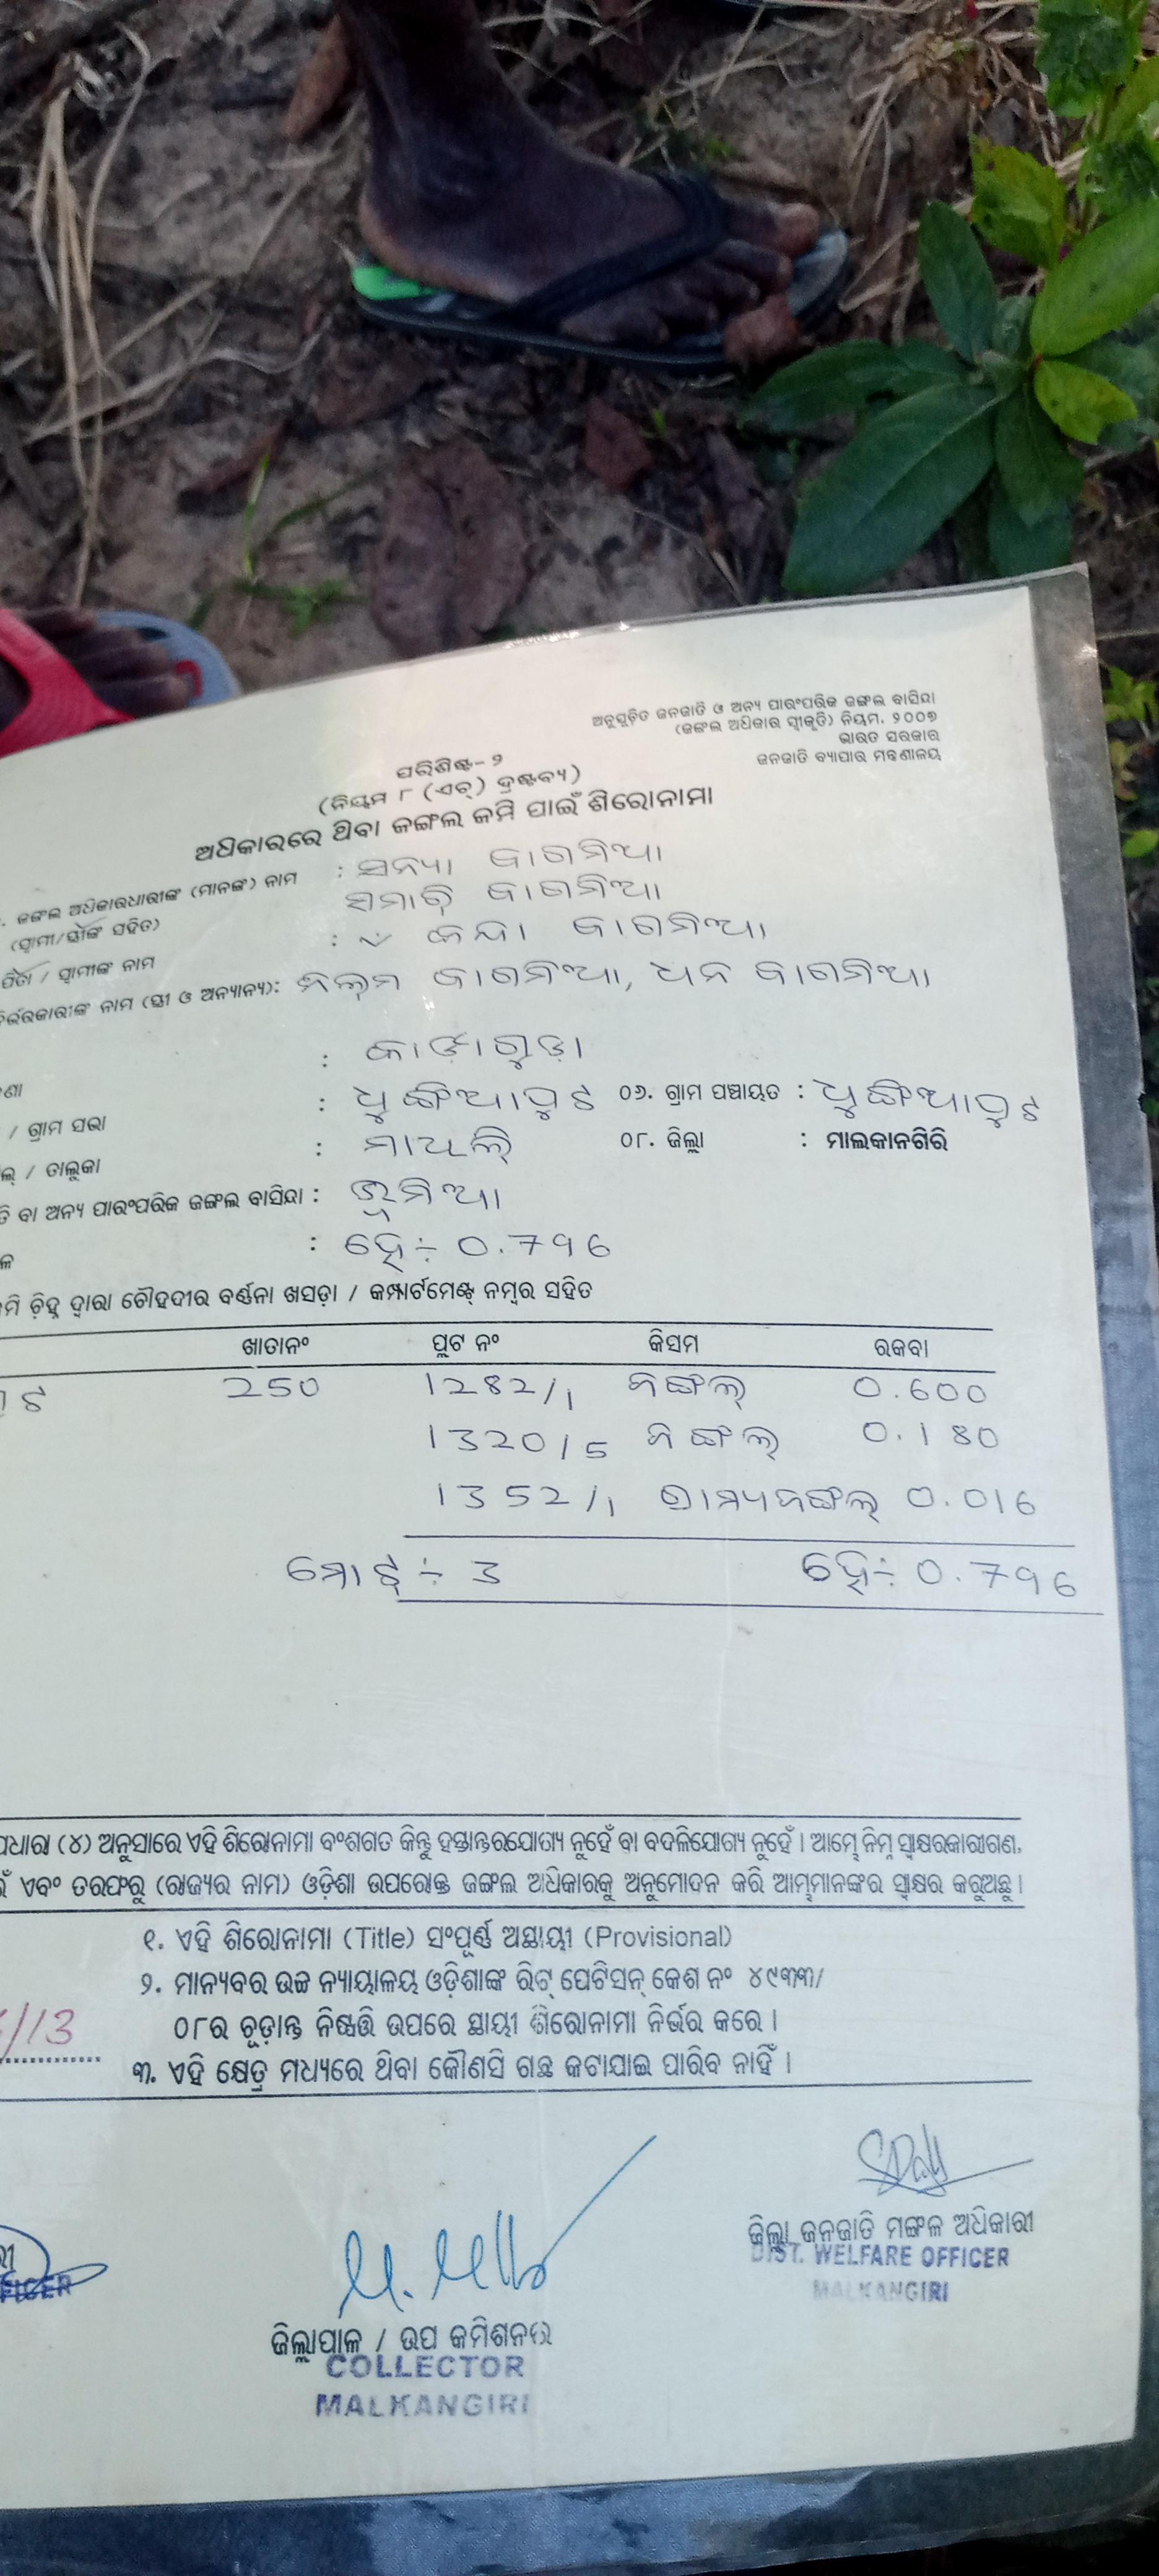 ଅନୁସୂଚିତ ଜନଜାତି ଓ ଅନ୍ୟ ପାରଂପରିକ ଜଙ୍ଗଲ ବାସିନ୍ଦା
(ଜଙ୍ଗଲ ଅଧିକାର ସ୍ୱୀକୃତି) ନିୟମ, ୨୦୦୭
ଭାରତ ସରକାର
ଜନଜାତି ବ୍ୟାପାର ମନ୍ତ୍ରଣାଳୟ
ପରିଶିଷ୍ଟ-୨
(ନିୟମ ୮ (ଏଚ୍) ଦ୍ରଷ୍ଟବ୍ୟ)
ଅଧିକାରରେ ଥିବା ଜଙ୍ଗଲ ଜମି ପାଇଁ ଶିରୋନାମା
ଜଙ୍ଗଲ ଅଧିକାରଧାରୀଙ୍କ (ମାନଙ୍କ) ନାମ :
(ସ୍ୱାମୀ/ସ୍ତ୍ରୀଙ୍କ ସହିତ)
ପିତା / ସ୍ୱାମୀଙ୍କ ନାମ :
ନାମ (ସ୍ତ୍ରୀ ଓ ଅନ୍ୟାନ୍ୟ) :
:
: ଧୁଙ୍ଗିଆପୁଟ ୦୬. ଗ୍ରାମ ପଞ୍ଚାୟତ : ଧୁଙ୍ଗିଆପୁଟ
/ ଗ୍ରାମ ସଭା
: ମାଥିଲି ୦୮. ଜିଲ୍ଲା : ମାଲକାନଗିରି
/ ତାଲୁକା
ବା ଅନ୍ୟ ପାରଂପରିକ ଜଙ୍ଗଲ ବାସିନ୍ଦା : ଭୂମିଆ
: ହେ÷ 0.796
ଚିହ୍ନ ଦ୍ୱାରା ଚୌହଦୀର ବର୍ଣ୍ଣନା ଖସଡ଼ା / କମ୍ପାର୍ଟମେଣ୍ଟ୍ ନମ୍ବର ସହିତ
ଖାତାନଂ ପ୍ଲଟ ନଂ କିସମ ରକବା
250 1282/1 ଜଙ୍ଗଲ୍ 0.600
1320/5 ଜଙ୍ଗଲ୍ 0.180
1352/1 ଗ୍ରାମ୍ୟଜଙ୍ଗଲ୍ 0.016
ମୋଟ୍ ÷ 3 ହେ÷ 0.796
(୪) ଅନୁସାରେ ଏହି ଶିରୋନାମା ବଂଶଗତ କିନ୍ତୁ ହସ୍ତାନ୍ତରଯୋଗ୍ୟ ନୁହେଁ ବା ବଦଳିଯୋଗ୍ୟ ନୁହେଁ । ଆମ୍ଭେ ନିମ୍ନ ସ୍ୱାକ୍ଷରକାରୀଗଣ,
ଏବଂ ତରଫରୁ (ରାଜ୍ୟର ନାମ) ଓଡ଼ିଶା ଉପରୋକ୍ତ ଜଙ୍ଗଲ ଅଧିକାରକୁ ଅନୁମୋଦନ କରି ଆମ୍ଭମାନଙ୍କର ସ୍ୱାକ୍ଷର କରୁଅଛୁ ।
୧. ଏହି ଶିରୋନାମା (Title) ସଂପୂର୍ଣ୍ଣ ଅସ୍ଥାୟୀ (Provisional)
୨. ମାନ୍ୟବର ଉଚ୍ଚ ନ୍ୟାୟାଳୟ ଓଡ଼ିଶାଙ୍କ ରିଟ୍ ପେଟିସନ୍ କେଶ ନଂ ୪୯୩୩/
୦୮ର ଚୂଡ଼ାନ୍ତ ନିଷ୍ପତ୍ତି ଉପରେ ସ୍ଥାୟୀ ଶିରୋନାମା ନିର୍ଭର କରେ ।
/13
୩. ଏହି କ୍ଷେତ୍ର ମଧ୍ୟରେ ଥିବା କୌଣସି ଗଛ କଟାଯାଇ ପାରିବ ନାହିଁ ।
ଜିଲ୍ଲା ଜନଜାତି ମଙ୍ଗଳ ଅଧିକାରୀ
DIST. WELFARE OFFICER
MALKANGIRI
ଜିଲ୍ଲାପାଳ / ଉପ କମିଶନର
COLLECTOR
MALKANGIRI